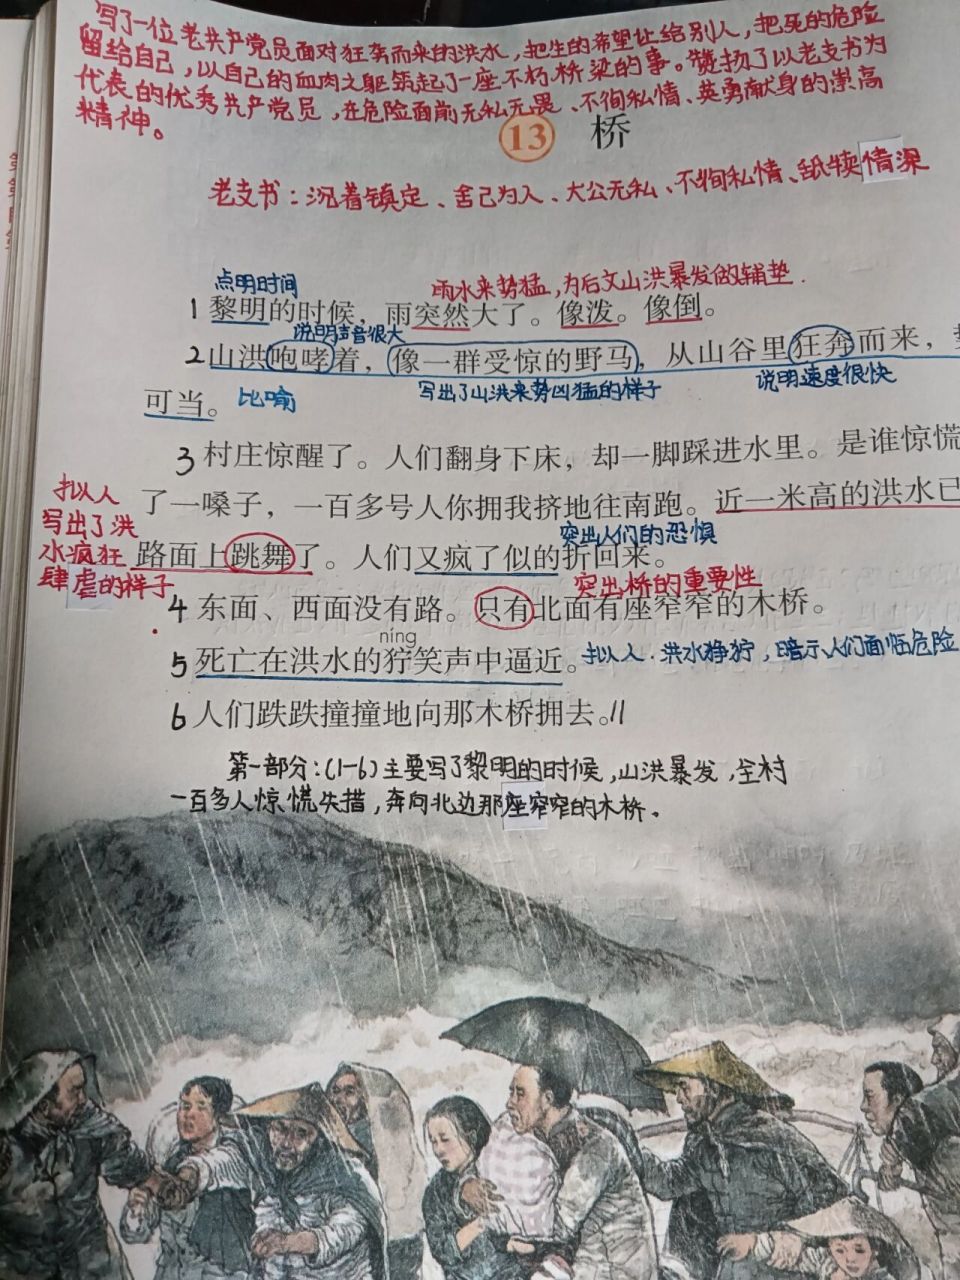 写了一位老共产党员面对狂奔而来的洪水，把生的希望让给别人，把死的危险
留给自己，以自己的血肉之躯筑起了一座不朽桥梁的事。赞扬了以老支书为
代表的优秀共产党员，在危险面前无私无畏、不徇私情、英勇献身的崇高
精神。
13 桥
老支书：沉着镇定、舍己为人、大公无私、不徇私情、舐犊情深
点明时间
雨水来势猛，为后文山洪暴发做铺垫.
1 黎明的时候，雨突然大了。像泼。像倒。
说明声音很大
2 山洪咆哮着，像一群受惊的野马，从山谷里狂奔而来，
写出了山洪来势凶猛的样子
说明速度很快
可当。 比喻
3 村庄惊醒了。人们翻身下床，却一脚踩进水里。是谁惊慌
拟人
写出了洪
水疯狂
肆虐的样子
了一嗓子，一百多号人你拥我挤地往南跑。近一米高的洪水已
突出人们的恐惧
路面上跳舞了。人们又疯了似的折回来。
突出桥的重要性
4 东面、西面没有路。只有北面有座窄窄的木桥。
níng
5 死亡在洪水的狞笑声中逼近。 拟人.洪水狰狞，暗示人们面临危险
6 人们跌跌撞撞地向那木桥拥去。//
第一部分：(1-6)主要写了黎明的时候，山洪暴发，全村
一百多人惊慌失措，奔向北边那座窄窄的木桥。